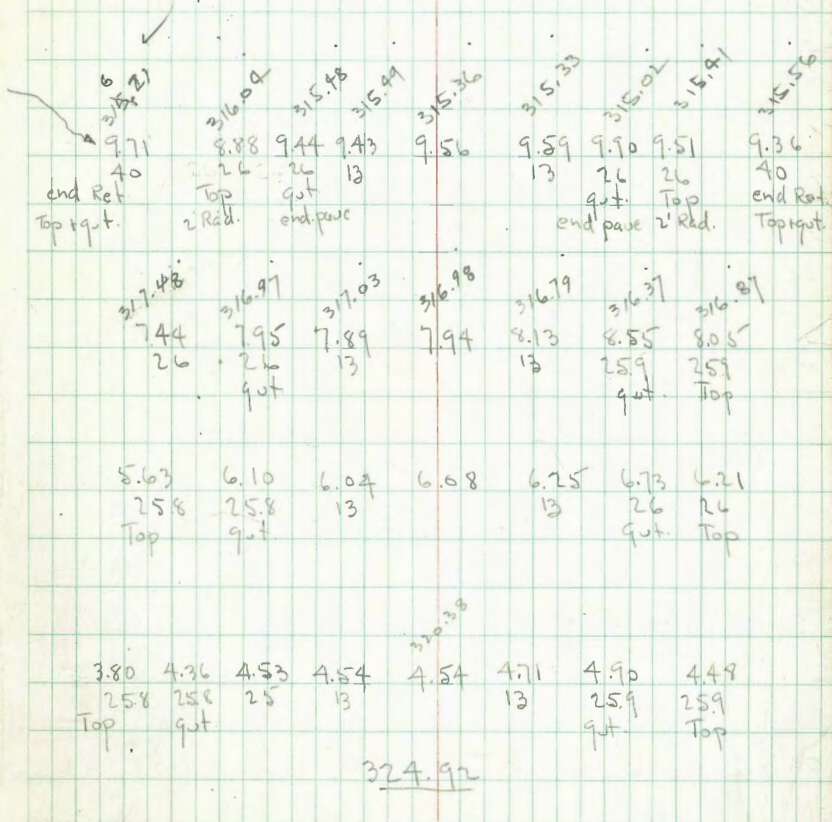 6
315.21 316.04 315.48 315.49 315.36 315.33 315.02 315.41 315.56
9.71 8.88 9.44 9.43 9.56 9.59 9.90 9.51 9.36
40 26 26 13 13 26 26 40
end Ret Top gut gut. Top end Ret.
Top + gut. 2' Rad. end pave end pave 2' Rad. Top + gut.
317.48 316.97 317.03 316.98 316.79 316.37 316.87
7.44 7.95 7.89 7.94 8.13 8.55 8.05
26 26 13 13 25.9 25.9
gut gut. Top
5.63 6.10 6.04 6.08 6.25 6.73 6.21
25.8 25.8 13 13 26 26
Top gut. Gut. Top
320.38
3.80 4.36 4.53 4.54 4.54 4.71 4.90 4.48
25.8 25.8 25 13 13 25.9 25.9
Top gut. gut. Top
324.92